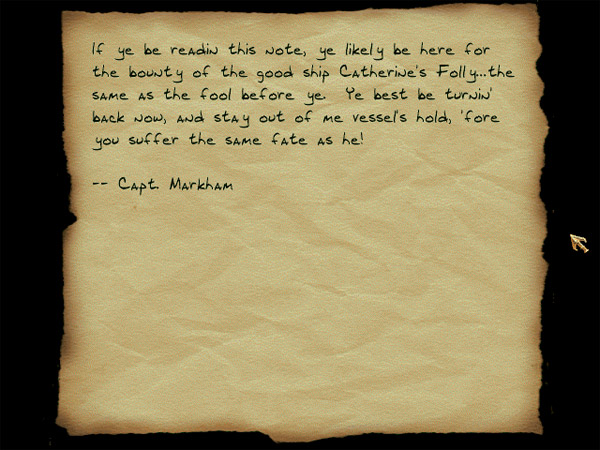 If ye be readin this note, ye likely be here for
the bounty of the good ship Catherine's Folly...the
same as the fool before ye.  Ye best be turnin'
back now, and stay out of me vessel's hold, 'fore
you suffer the same fate as he!
-- Capt. Markham